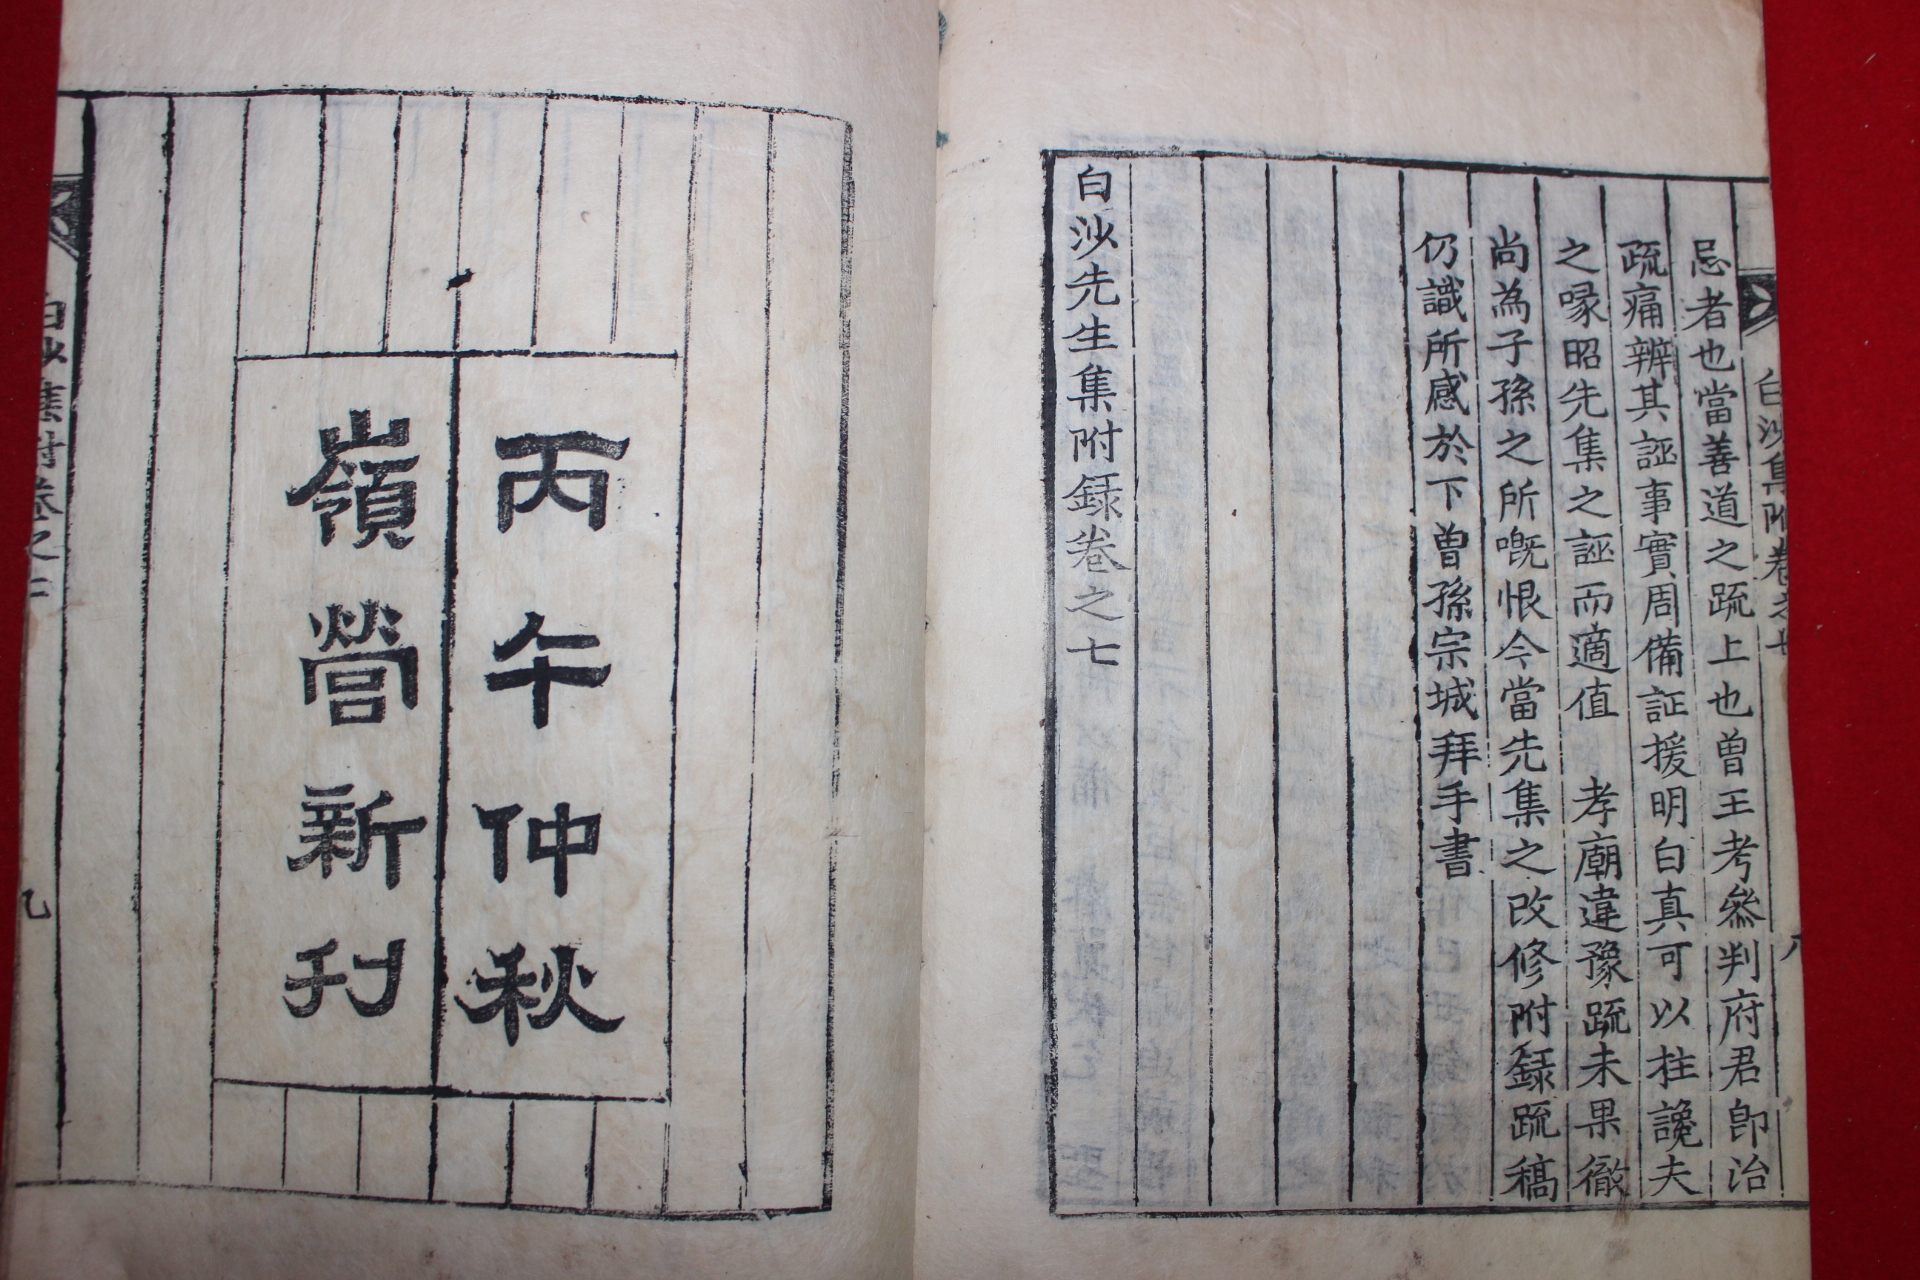 白沙集附卷之七
八
忌者也當善道之疏上也曾王考叅判府君卽治
疏痛辨其誣事實周備証援明白真可以拄讒夫
之喙昭先集之誣而適值 孝廟違豫疏未果徹
尚為子孫之所嘅恨今當先集之改修附録疏稿
仍識所感於下曾孫宗城拜手書
白沙先生集附録卷之七
丙午仲秋
嶺營新刊
白沙集附卷之
九